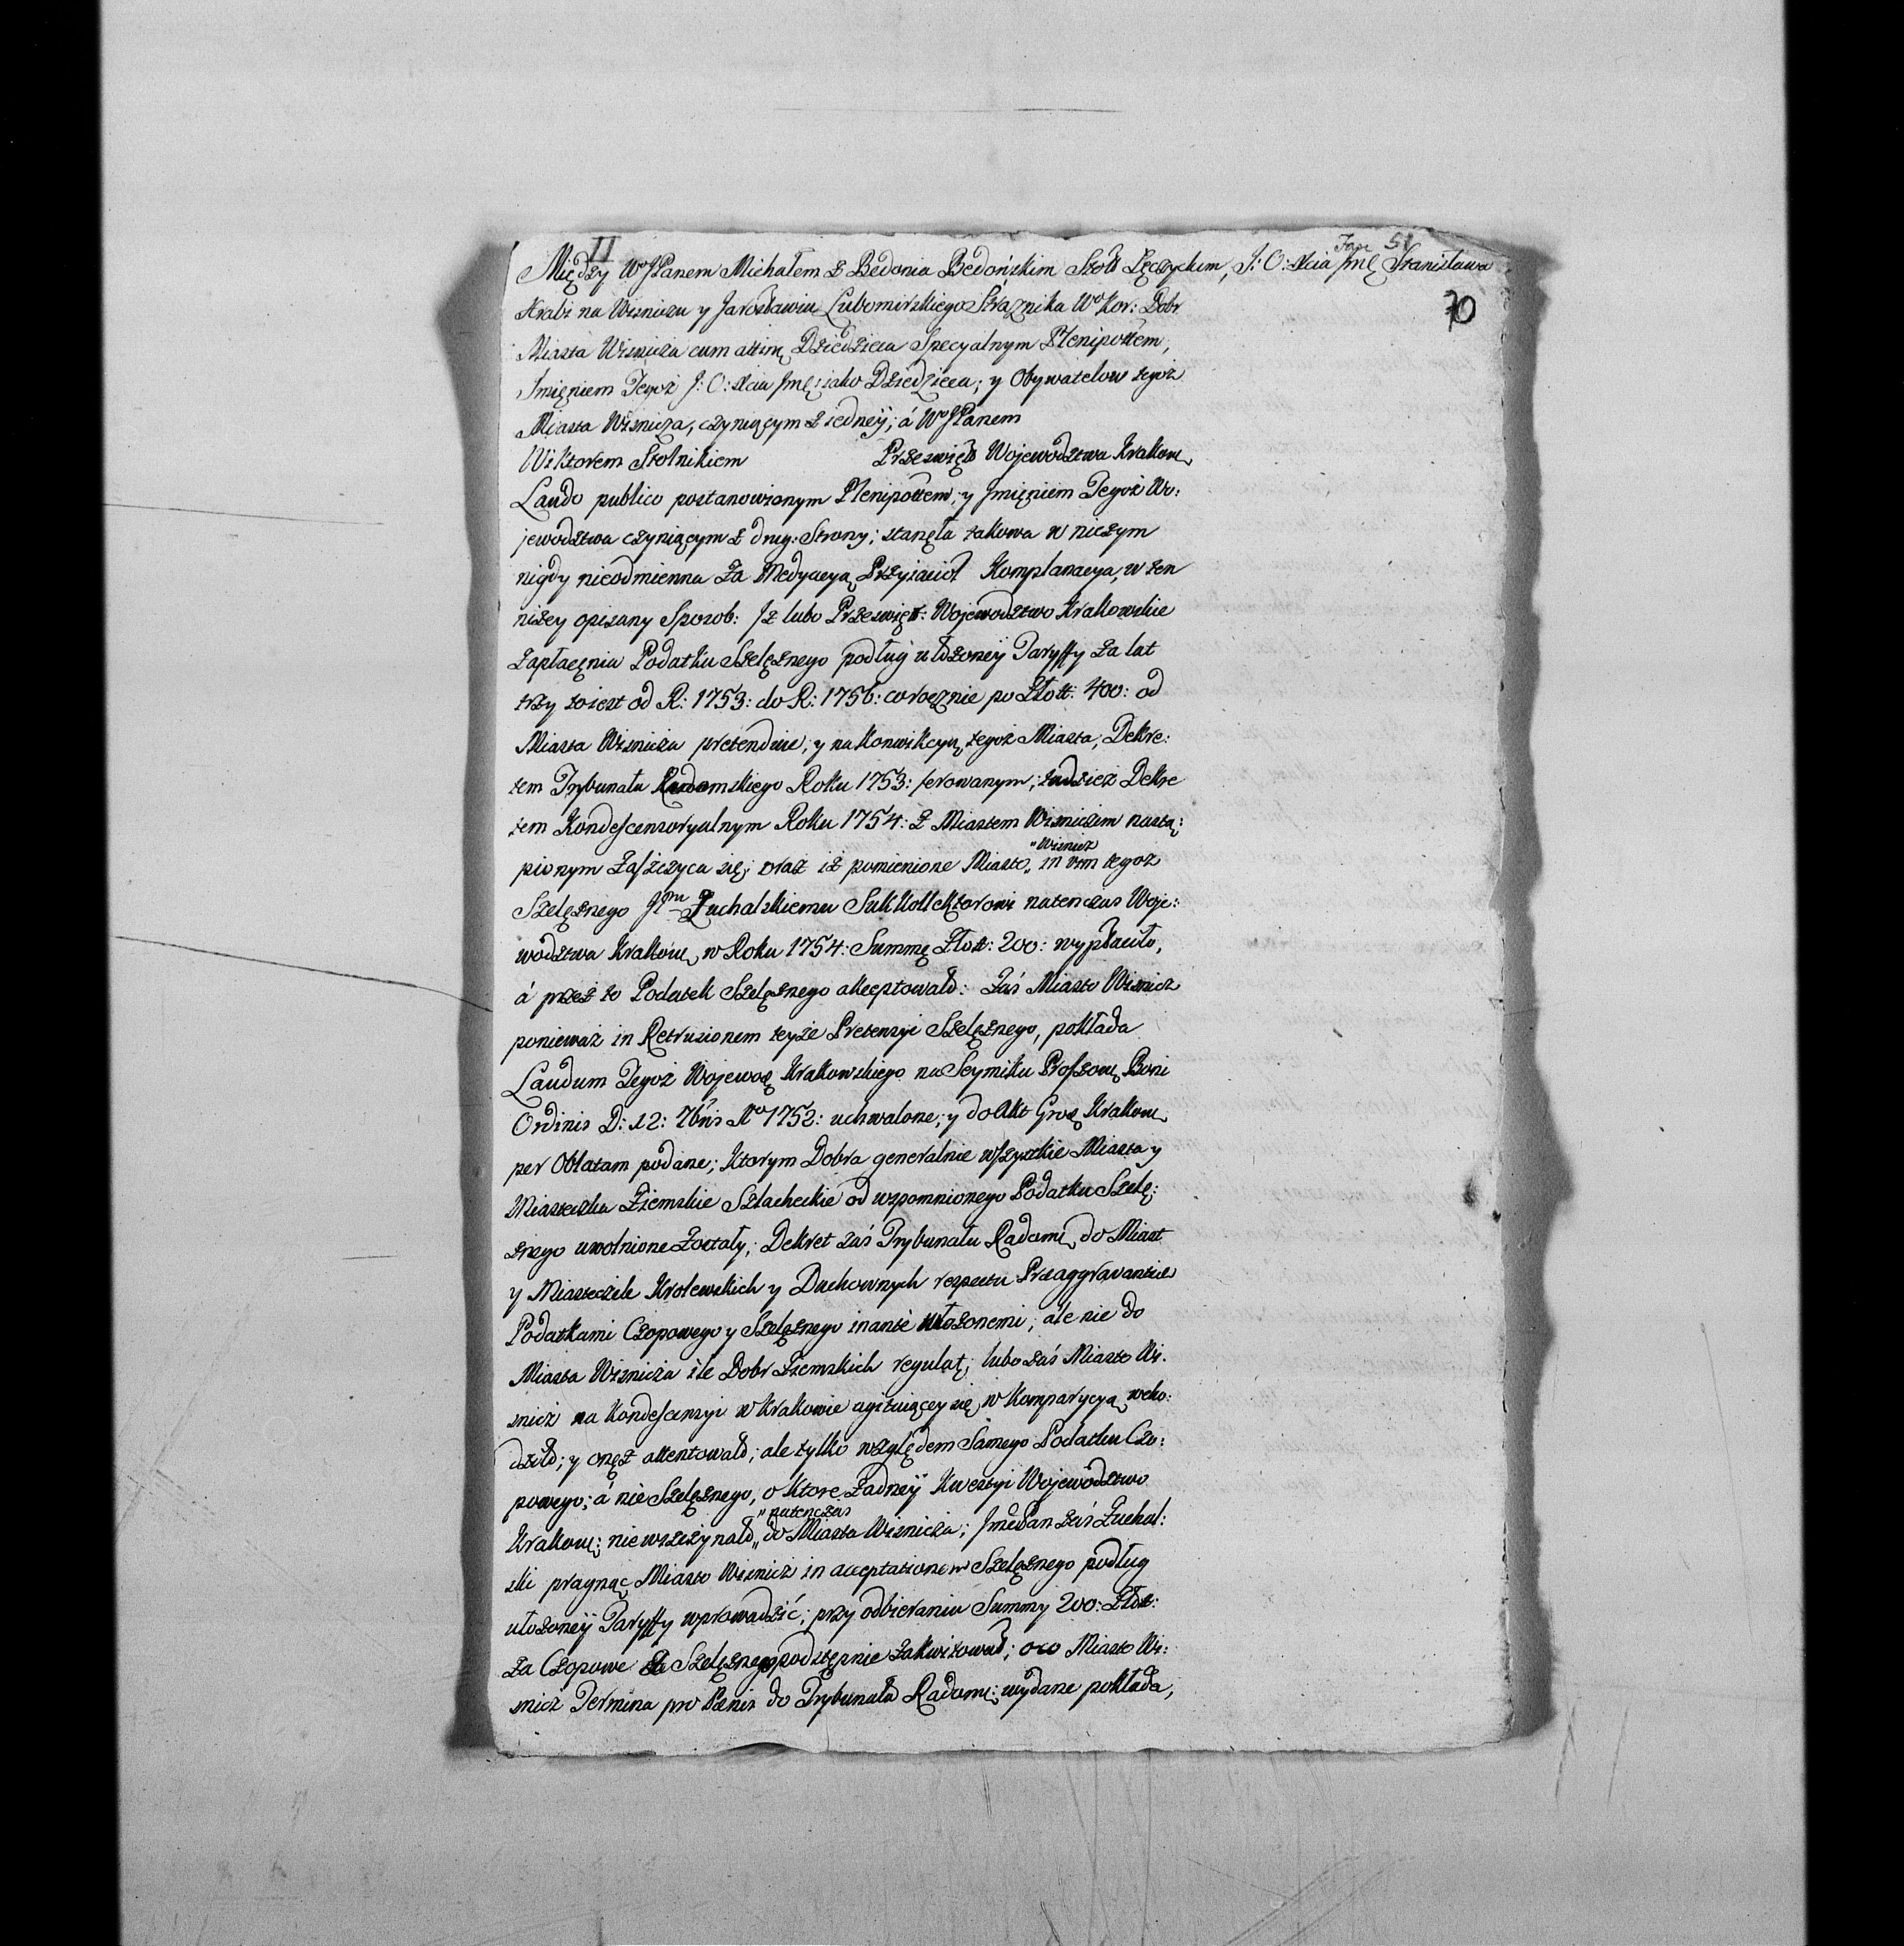 II
Fasc 51
Między WJPanem Michałem z Bedonia Bedońskim Stol: Łęczyckim, J: O: Xcia Jmę Stanisława
70
Hrabi na Wisniczu y Jarosławiu Lubomirskiego Straznika Wo Kor: Dobr
Miasta Wisnicza cum attinę Dziedzica Specyalnym Plenipottem,
Imięniem Tegoż J: O: Xcia Jmę iako Dziedzica; y Obywatelow tegoż
Miasta Wisnicza, czyniącym z iedneÿ; á WJPanem
Wiktorem Stolnikiem Przeswięt Wojewodztwa Krakow
Laudo publico postanowionym Plenipottem; y Jmięniem Tegoż Wo:
jewodztwa czyniącym z drug: Strony; stanęła takowa w niczym
nigdy nieodmienna za Medyacyą Przyiacioł Komplanacya, w ten
niżey opisany Sposob: Jż lubo Przeswięt: Wojewodztwo Krakowskie
Zapłacęnia Podatku Szelężnego podług ułożoneÿ Taryffy za lat
trzy toiest od R: 1753: do R: 1756: corocznie po Złott: 400: od
Miasta Wisnicza pretenduie; y na konwikcyą tegoż Miasta, Dekre:
tem Trybunału Radomskiego Roku 1753: ferowanym; tudzież Dekre
tem Kondescensoryalnym Roku 1754: z Miastem Wisniczem nastą:
pionym Zaszczyca się; oraz iż pomienione Miasto „ in vim tegoż
„ Wisnicz
Szelężnego Jmu Zuchalskiemu Sukkollektorowi natenczas Woje:
wodztwa Krakow w Roku 1754: Summę Złott: 200: wypłaciło,
á przez to Podatek Szelężnego akceptował: Zaś Miasto Wisnicz
ponieważ in Retrusionem teyże Pretensyi Szelężnego, pokłada
Laudum Tegoż Wojewoę Krakowskiego na Seymiku Proszow Boni
Ordinis D: 12: 7bris Ao 1752: uchwalone; y do Akt Groę Krakow
per Oblatam podane; Ktorym Dobra generalnie wszystkie Miasta y
Miasteczka Ziemskie Szlacheckie od wspomnionego Podatku Szelę:
żnego uwolnione zostały; Dekret zaś Trybunału Radom do Miast
y Miasteczek Krolewskich y Duchownych respectu Præaggravantiæ
Podatkami Czopowego y Szelężnego inantè włożonemi; ale nie do
Miasta Wisnicza ile Dobr Ziemskich regulat; lubo zaś Miasto Wi:
snicz na Kondescensyi w Krakowie agituiącey się w Komparycyą wcho:
dził; y onęż attentował; ale tylko względem Samego Podatku Czo:
powego; á nie Szelężnego, o Ktore żadneÿ Kwestyi Wojewodztwo
„ natenczas
Krakow: niewszczynało „ do Miasta Wisnicza; Jmć Pan zaś Zuchal:
ski pragnąc Miasto Wisnicz in acceptationem Szelężnego podług
ułożoneÿ Taryffy wprowadzić; przy odbieraniu Summy 200: Złott:
za Czopowe za Szelężnego podstępnie zakwitował; oco Miasto Wi:
snicz Termina pro Pœnis do Trybunału Radom: wydane pokłada,